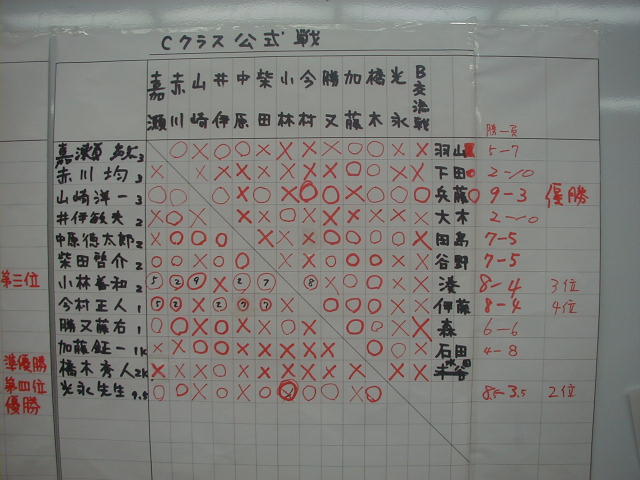 Cクラス公式戦
嘉瀬 赤川 山崎 井伊 中原 柴田 小林 今村 勝又 加藤 橋木 光永 B交流戦
勝一負
3 羽山 5-7
赤川 均 3 下田 2-10
山崎洋一 3 兵藤 9-3 優勝
井伊敏夫 2 大木 2-10
中原徳太郎 2 田島 7-5
柴田啓介 2 谷野 7-5
第三位 小林善和 2 湊 8-4 3位
今村正人 1 伊藤 8-4 4位
勝又藤右 1 森 6-6
準優勝 加藤鉦一 1K 石田 4-8
第四位 橋木秀人 2K
優勝 光永先生 8.5-3.5 2位